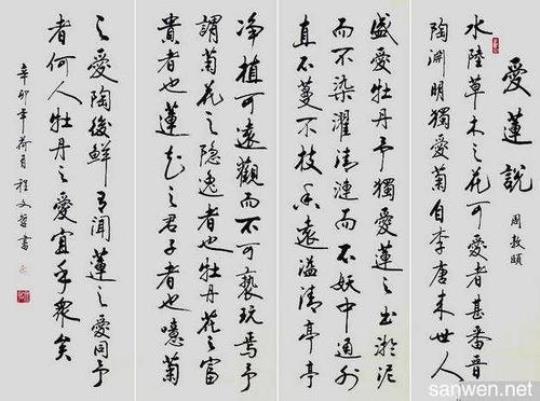 愛蓮說
周敦頤
水陸草木之花可愛者甚番晋
陶渊明獨愛菊自李唐来世人
盛愛牡丹予獨愛蓮之出淤泥
而不染濯清漣而不妖中通外
直不蔓不枝香遠溢清亭亭
净植可遠觀而不可褻玩焉予
謂菊花之隐逸者也牡丹花之富
貴者也蓮花之君子者也噫菊
之愛陶後鮮有聞蓮之愛同予
者何人牡丹之愛宜乎衆矣
辛卯年荷月程文書
sanwen.net